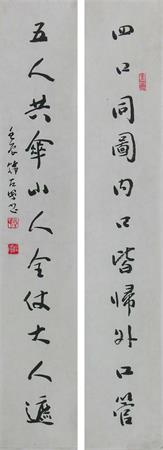 四口同圖內口皆歸外口管
五人共傘小人全仗大人遮